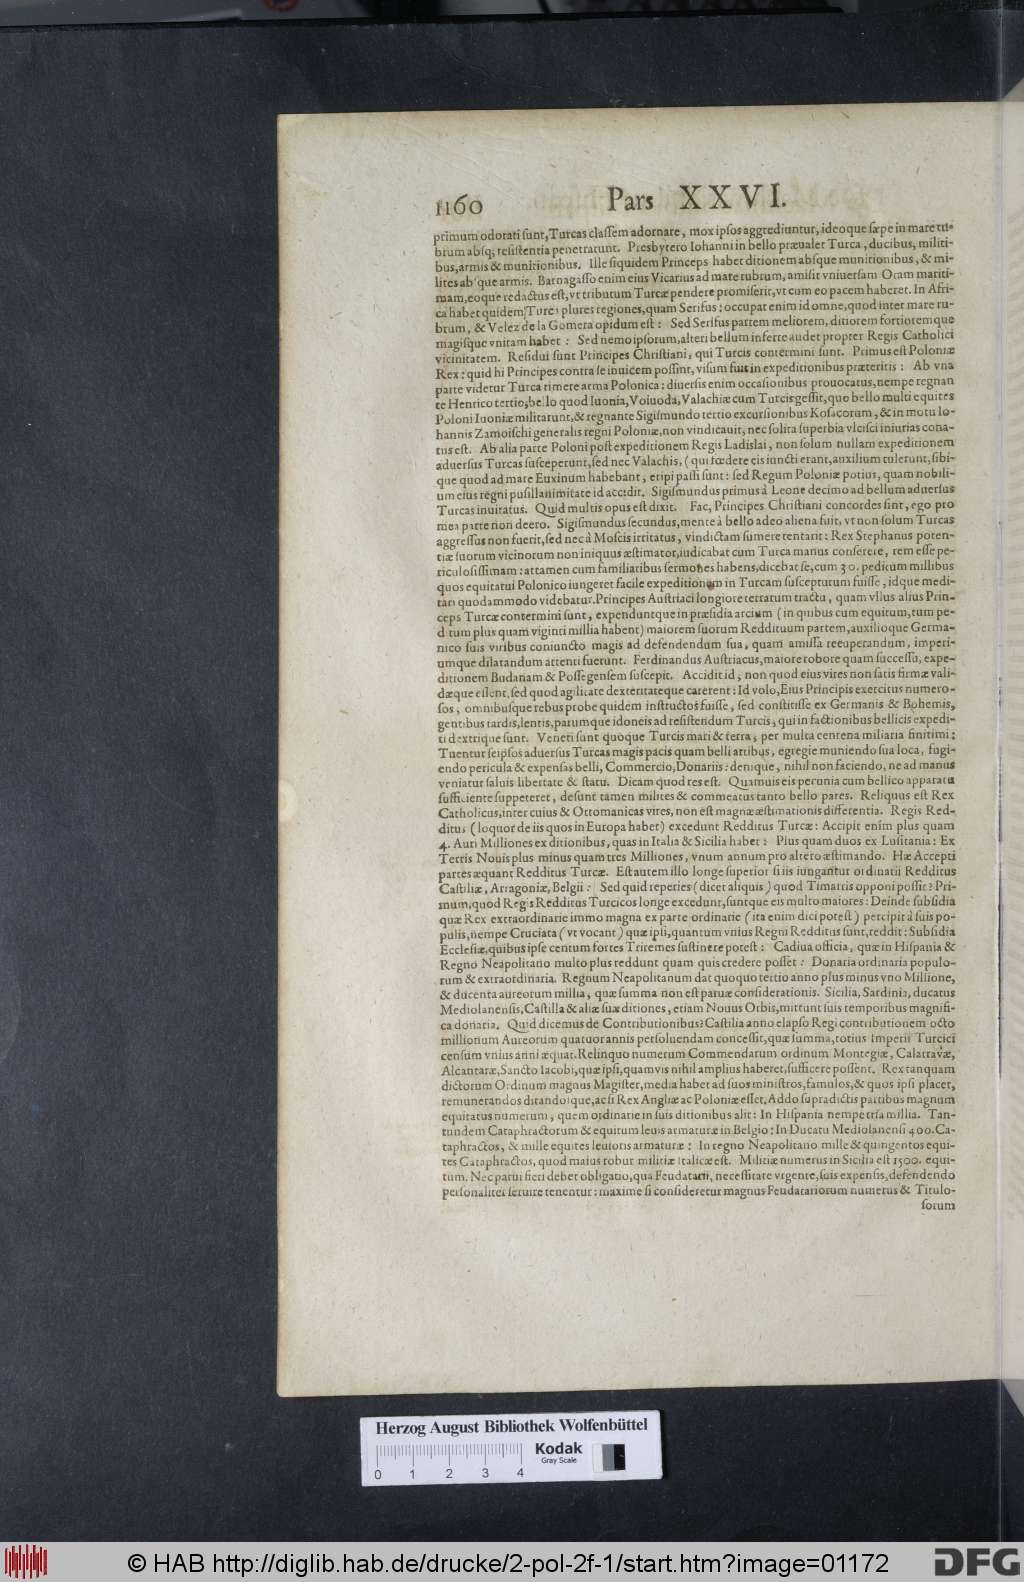 1160 Pars XXVI.
primum odorati sunt, Turcas classem adornare, mox ipsos aggrediuntur, ideoque sæpe in mare ru-
brum absq; resistentia penetrarunt. Presbytero Iohanni in bello præualet Turca, ducibus, militi-
bus, armis & munitionibus. Ille siquidem Princeps habet ditionem absque munitionibus, & mi-
lites absque armis. Barnagasso enim eius Vicarius ad mare rubrum, amisit vniuersam Oram mariti-
mam, eoque redactus est, vt tributum Turcæ pendere promiserit, vt cum eo pacem haberet. In Afri-
ca habet quidem Turca plures regiones, quam Serifus: occupat enim id omne, quod inter mare ru-
brum, & Velez de la Gomera opidum est: Sed Serifus partem meliorem, ditiorem fortioremque
magisque vnitam habet: Sed nemo ipsorum, alteri bellum inferre audet propter Regis Catholici
vicinitatem. Residui sunt Principes Christiani, qui Turcis contermini sunt. Primus est Poloniæ
Rex: quid hi Principes contra se inuicem possint, visum fuit in expeditionibus præteritis: Ab vna
parte videtur Turca timere arma Polonica: diuersis enim occasionibus prouocatus, nempe regnan
te Henrico tertio, bello quod Iuonia, Voiuoda, Valachiæ cum Turcis gessit, quo bello multi equites
Poloni Iuoniæ militarunt, & regnante Sigismundo tertio excursionibus Kosacorum, & in motu Io-
hannis Zamoischi generalis regni Poloniæ, non vindicauit, nec solita superbia vlcisci iniurias cona-
tus est. Ab alia parte Poloni post expeditionem Regis Ladislai, non solum nullam expeditionem
aduersus Turcas susceperunt, sed nec Valachis, (qui fœdere eis iuncti erant, auxilium tulerunt, sibi-
que quod ad mare Euxinum habebant, eripi passi sunt: sed Regum Poloniæ potius, quam nobili-
um eius regni pusillanimitate id accidit. Sigismundus primus à Leone decimo ad bellum aduersus
Turcas inuitatus. Quid multis opus est dixit. Fac, Principes Christiani concordes sint, ego pro
mea parte non deero. Sigismundus secundus, mente à bello adeo aliena fuit, vt non solum Turcas
aggressus non fuerit, sed nec à Moscis irritatus, vindictam sumere tentarit: Rex Stephanus poten-
tiæ suorum vicinorum non iniquus æstimator, iudicabat cum Turca manus conserere, rem esse pe-
riculosissimam: attamen cum familiaribus sermones habens, dicebat se, cum 30. peditum millibus
quos equitatui Polonico iungeret facile expeditionem in Turcam suscepturum fuisse, idque medi-
tari quodammodo videbatur. Principes Austriaci longiore terrarum tractu, quam vllus alius Prin-
ceps Turcæ contermini sunt, expenduntque in præsidia arcium (in quibus cum equitum, tum pe-
ditum plus quam viginti millia habent) maiorem suorum Reddituum partem, auxilioque Germa-
nico suis viribus coniuncto magis ad defendendum sua, quam amissa recuperandum, imperi-
umque dilatandum attenti fuerunt. Ferdinandus Austriacus, maiore robore quam successu, expe-
ditionem Budanam & Possegensem suscepit. Accidit id, non quod eius vires non satis firmæ vali-
dæque essent, sed quod agilitate dexteritateque carerent: Id volo, Eius Principis exercitus numero-
sos, omnibusque rebus probe quidem instructos fuisse, sed constitisse ex Germanis & Bohemis,
gentibus tardis, lentis, parumque idoneis ad resistendum Turcis, qui in factionibus bellicis expedi-
ti dextrique sunt. Veneti sunt quoque Turcis mari & terra, per multa centena miliaria finitimi:
Tuentur seipsos aduersus Turcas magis pacis quam belli artibus, egregie muniendo sua loca, fugi-
endo pericula & expensas belli, Commercio, Donariis: denique, nihil non faciendo, ne ad manus
veniatur saluis libertate & statu. Dicam quod res est. Quamuis eis pecunia cum bellico apparatu
sufficiente suppeteret, desunt tamen milites & commeatus tanto bello pares. Reliquus est Rex
Catholicus, inter cuius & Ottomanicas vires, non est magnæ æstimationis differentia. Regis Red-
ditus (loquor de iis quos in Europa habet) excedunt Redditus Turcæ: Accipit enim plus quam
4. Auri Milliones ex ditionibus, quas in Italia & Sicilia habet: Plus quam duos ex Lusitania: Ex
Terris Nouis plus minus quam tres Milliones, vnum annum pro altero æstimando. Hæ Accepti
partes æquant Redditus Turcæ. Est autem illo longe superior si iis iungantur ordinarii Redditus
Castiliæ, Arragoniæ, Belgii: Sed quid reperies (dicet aliquis) quod Timarris opponi possit? Pri-
mum, quod Regis Redditus Turcicos longe excedunt, suntque eis multo maiores: Deinde subsidia
quæ Rex extraordinarie immo magna ex parte ordinarie (ita enim dici potest) percipit à suis po-
pulis, nempe Cruciata (vt vocant) quæ ipsi, quantum vnius Regni Redditus sunt, reddit: Subsidia
Ecclesiæ, quibus ipse centum fortes Triremes sustinere potest: Cadiua officia, quæ in Hispania &
Regno Neapolitano multo plus reddunt quam quis credere posset: Donaria ordinaria populo-
rum & extraordinaria. Regnum Neapolitanum dat quoquo tertio anno plus minus vno Millione,
& ducenta aureorum millia, quæ summa non est paruæ considerationis. Sicilia, Sardinia, ducatus
Mediolanensis, Castilla & aliæ suæ ditiones, etiam Nouus Orbis, mittunt suis temporibus magnifi-
ca donaria. Quid dicemus de Contributionibus? Castilia anno elapso Regi contributionem octo
millionum Aureorum quatuor annis persoluendam concessit, quæ summa, totius Imperii Turcici
censum vnius anni æquat. Relinquo numerum Commendarum ordinum Montegiæ, Calatravæ,
Alcantaræ, Sancto Iacobi, quæ ipsi, quamvis nihil amplius haberet, sufficere possent. Rex tanquam
dictorum Ordinum magnus Magister, media habet ad suos ministros, famulos, & quos ipsi placet,
remunerandos ditandosque, ac si Rex Angliæ ac Poloniæ esset. Addo supradictis partibus magnum
equitatus numerum, quem ordinarie in suis ditionibus alit: In Hispania nempe tria millia. Tan-
tundem Cataphractorum & equitum leuis armaturæ in Belgio: In Ducatu Mediolanensi 400. Ca-
taphractos, & mille equites leuioris armaturæ: In regno Neapolitano mille & quingentos equi-
tes Cataphractos, quod maius robur militiæ Italicæ est. Militiæ numerus in Sicilia est 1500. equi-
tum. Nec parui fieri debet obligatio, qua Feudatarii, necessitate vrgente, suis expensis, defendendo
personaliter seruire tenentur: maxime si consideretur magnus Feudatariorum numerus & Titulo-
sorum
Herzog August Bibliothek Wolfenbüttel
0 1 2 3 4
Kodak
Gray Scale
© HAB http://diglib.hab.de/drucke/2-pol-2f-1/start.htm?image=01172
DFG